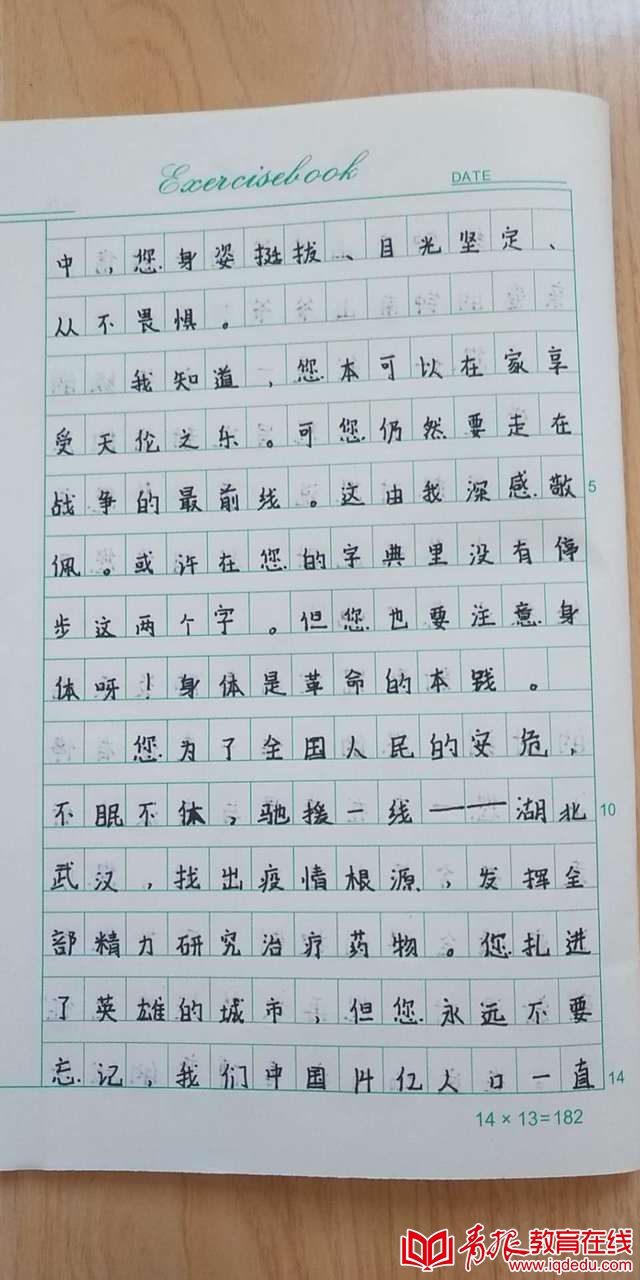 Exercisebook
DATE
中，您身姿挺拔、目光坚定、
从不畏惧。
我知道，您本可以在家享
受天伦之乐。可您仍然要走在
战争的最前线。这由我深感敬
5
佩。或许在您的字典里没有停
步这两个字。但您也要注意身
体呀！身体是革命的本践。
您为了全国人民的安危，
不眠不体，驰援一线——湖北
10
武汉，找出疫情根源，发挥全
部精力研究治疗药物。您扎进
了英雄的城市，但您永远不要
忘记，我们中国14亿人口一直
14
14×13=182
青报教育在线
www.iqdedu.com